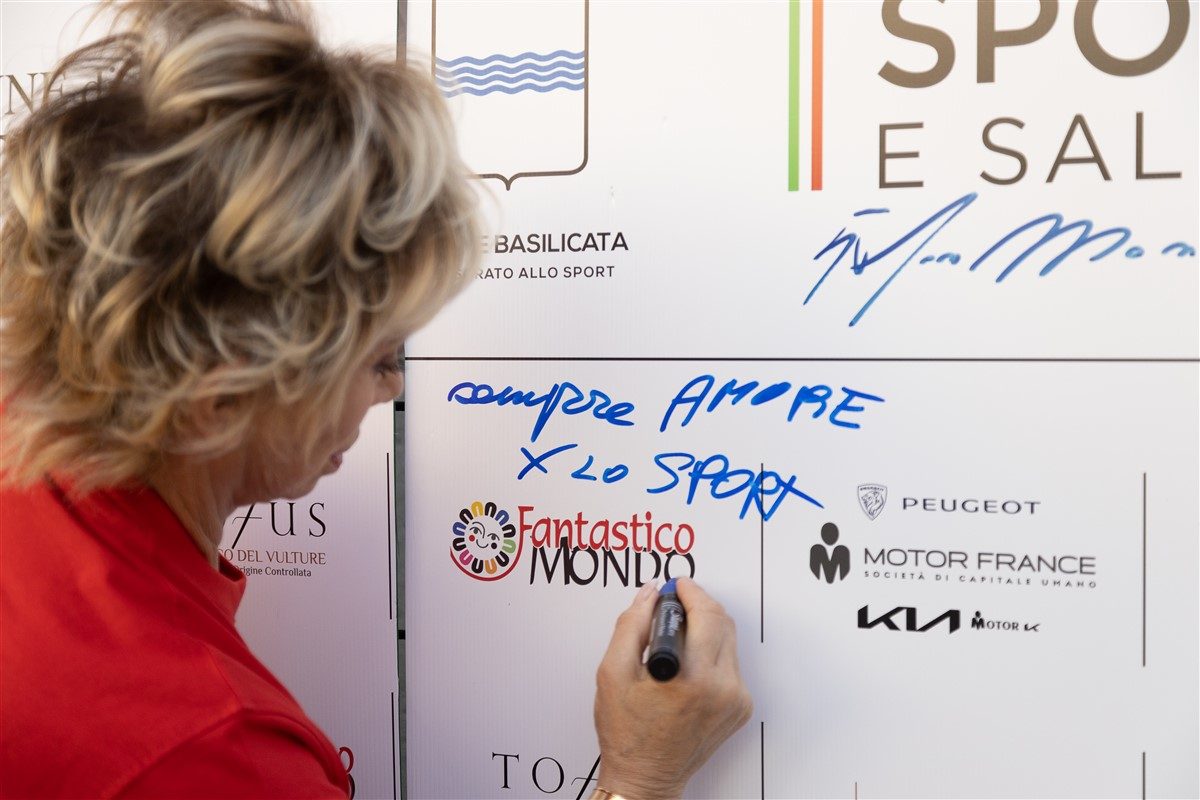 SPO
E SAL
E BASILICATA
RATO ALLO SPORT
sempre AMORE
X LO SPORT
Fantastico
MONDO
PEUGEOT
MOTOR FRANCE
SOCIETÀ DI CAPITALE UMANO
KIA MOTOR K
US
CO DEL VULTURE
Origine Controllata
TO